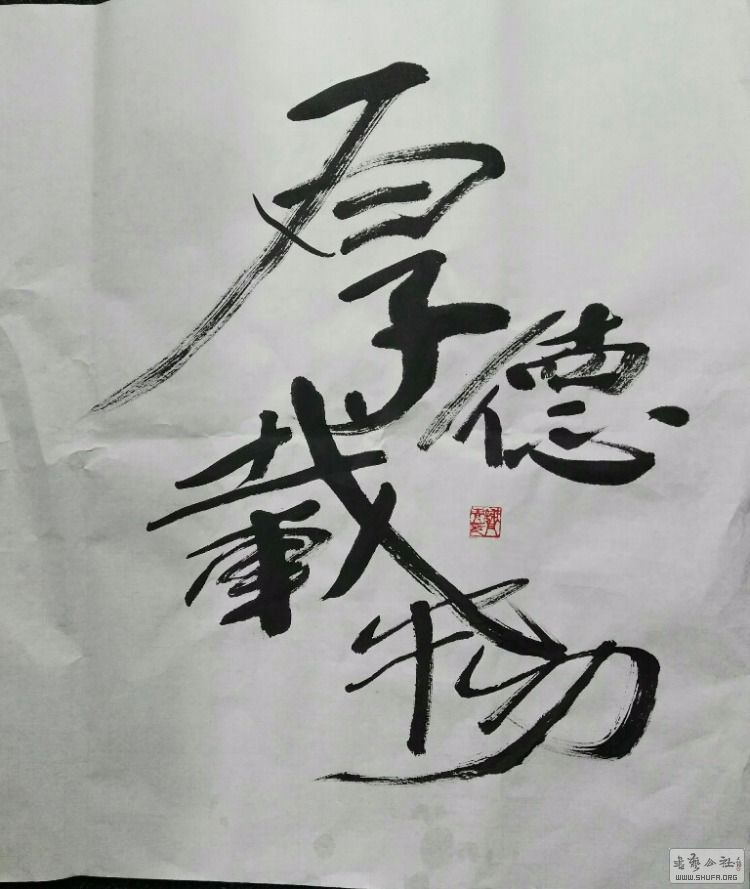 厚
德
載
物
书艺公社
WWW.SHUFA.ORG